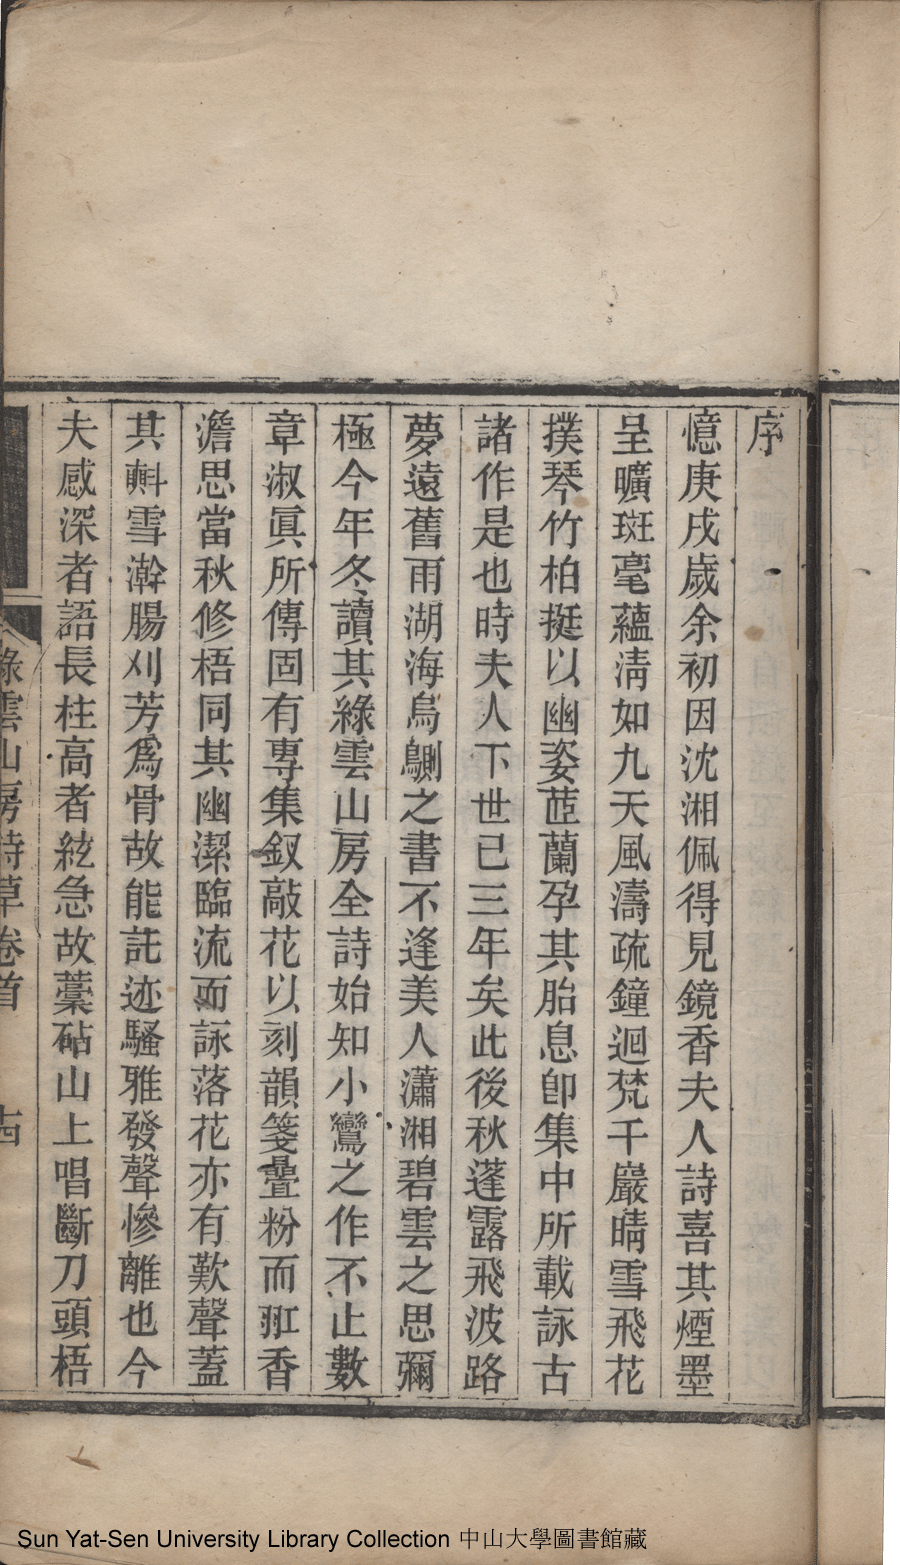 序
憶庚戌歲余初因沈湘佩得見鏡香夫人詩喜其煙墨
呈曠斑毫蘊淸如九天風濤疏鐘迴梵千巖晴雪飛花
撲琴竹柏挺以幽姿茝蘭孕其胎息卽集中所載詠古
諸作是也時夫人下世已三年矣此後秋蓬露飛波路
夢遠舊雨湖海烏鰂之書不逢美人瀟湘碧雲之思彌
極今年冬讀其綠雲山房全詩始知小鸞之作不止數
章淑眞所傳固有專集釵敲花以刻韻箋疊粉而香
澹思當秋修梧同其幽潔臨流而詠落花亦有歎聲蓋
其斠雪澣腸刈芳爲骨故能託迹騷雅發聲慘離也今
夫感深者語長柱高者絃急故藁砧山上唱斷刀頭梧
綠雲山房詩草卷首
十四
Sun Yat-Sen University Library Collection 中山大學圖書館藏